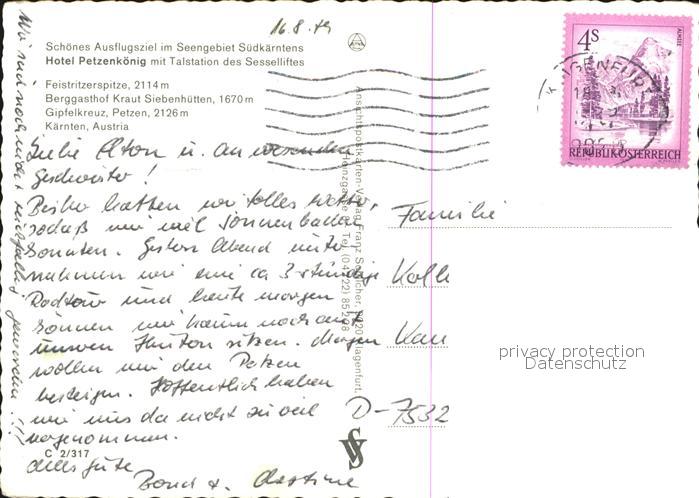 16.8.79
Schönes Ausflugsziel im Seengebiet Südkärntens
Hotel Petzenkönig mit Talstation des Sesselliftes
Feistritzerspitze, 2114 m
Berggasthof Kraut Siebenhütten, 1670 m
Gipfelkreuz, Petzen, 2126 m
Kärnten, Austria
Liebe Eltern u. an
Geschwister!
Bisher hatten wir tolles Wetter,
sodaß wir viel Sonnenbaden
konnten. Gestern Abend unter
nahmen wir eine ca 3-stündige
Radtour und heute morgen
können wir kaum noch auf
unseren Hintern sitzen. Morgen
wollen wir den Petzen
besteigen. Hoffentlich haben
wir uns da nicht zu viel
vorgenommen.
C 2/317
Alles gute
Wir sind noch nicht rückfällig geworden!!!
Ansichtspostkarten-Verlag Franz
Tel. (04222)
4 S
ALMSEE
REPUBLIK ÖSTERREICH
KLAGENFURT
Familie
D-7532
privacy protection
Datenschutz